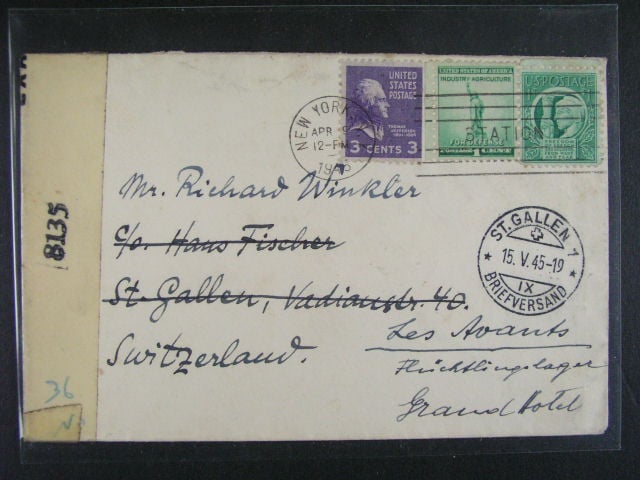 EXA
8135
36
NEW YORK
APR
12-PM
19
UNITED
STATES
POSTAGE
THOMAS
JEFFERSON
3 CENTS 3
UNITED STATES OF AMERICA
INDUSTRY AGRICULTURE
FOR DEFENSE
POSTAGE 1 CENT
U.S. POSTAGE
FREEDOM
STATION
Mr. Richard Winkler
c/o. Hans Fischer
St. Gallen, Vadianstr. 40.
Switzerland.
ST. GALLEN 1
15. V. 45-19
IX
BRIEFVERSAND
Les Avants
Flüchtlingslager
Grand Hotel